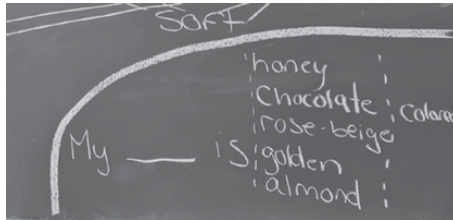 SOFT
honey
Chocolate
rose-beige
My ____ is golden
almond
Colored